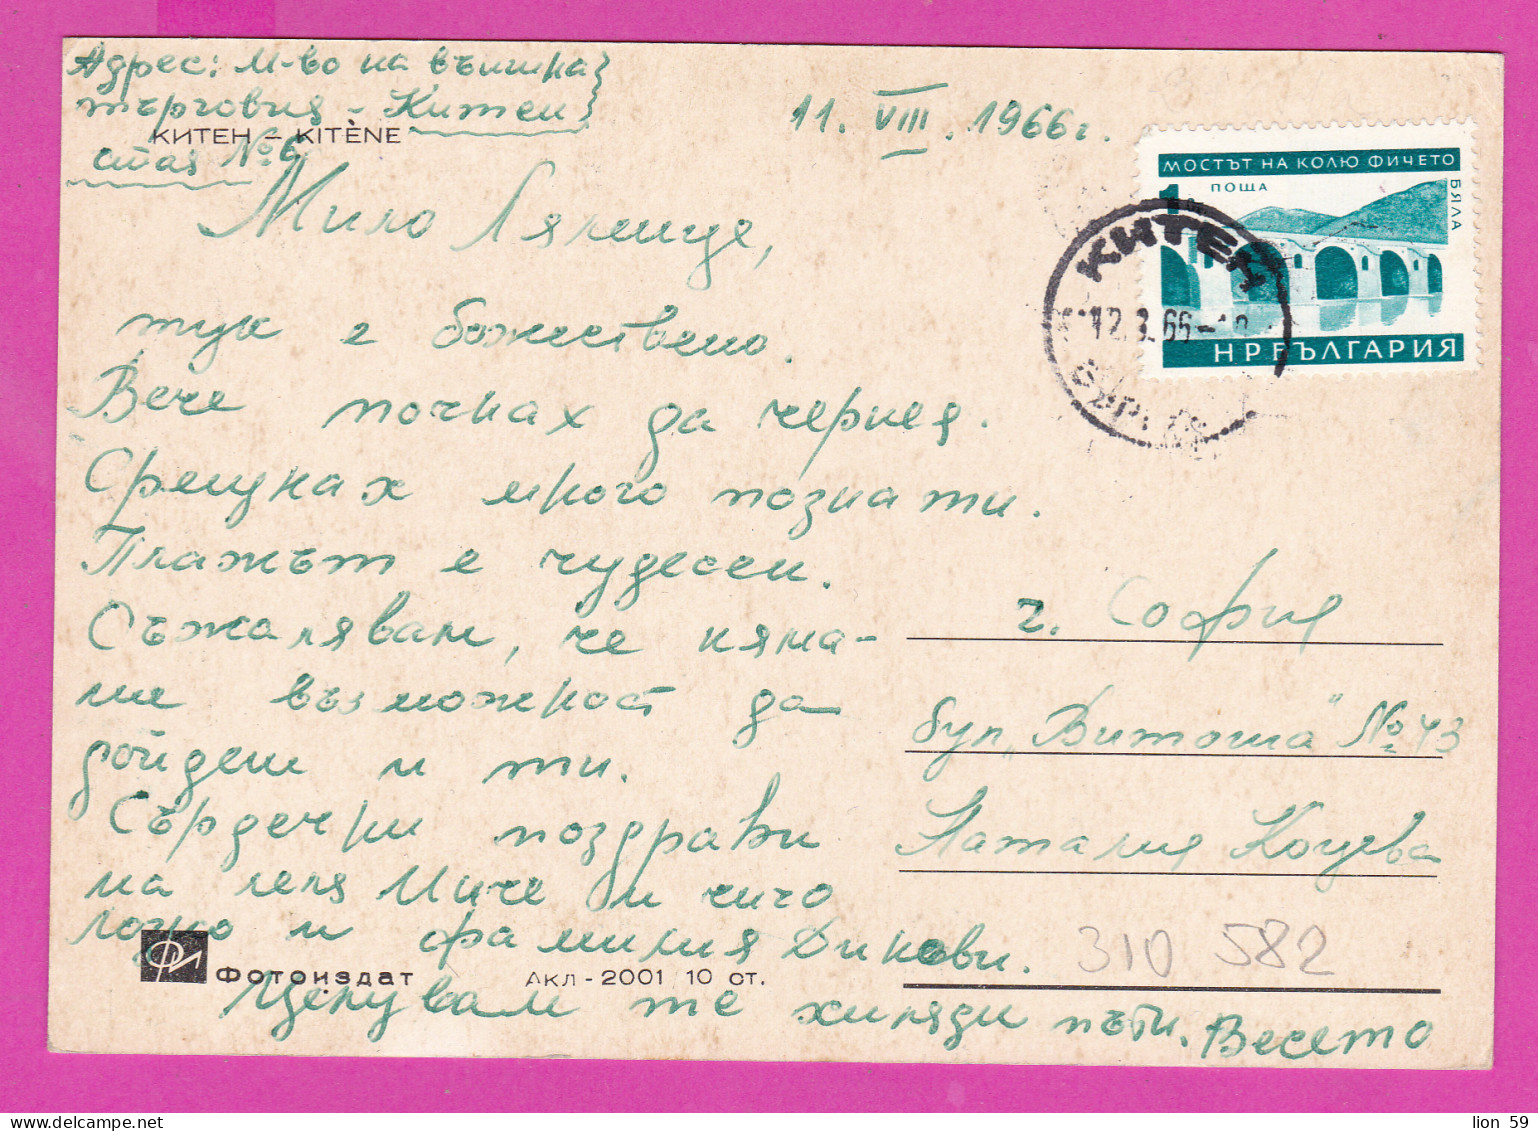 Адрес: М-во на външна
търговия - Китен
КИТЕН - KITÈNE
стая № 6
11. VIII. 1966 г.
МОСТЪТ НА КОЛЮ ФИЧЕТО
БЯЛА
ПОЩА
1
НРБЪЛГАРИЯ
КИТЕН
12.8.66
Мило Ляленце,
тук е божествено.
Вече почнах да чернея.
Срещнах много познати.
Плажът е чудесен.
Съжалявам, че няма-
ше възможност да
дойдеш и ти.
Сърдечни поздрави
на леля Миче и чичо
и фамилия Дикови.
Целувам те хиляди пъти. Весето
г. София
бул. „Витоша" № 43
Наталия Коцева
310 582
ФИ Фотоиздат
Акл - 2001 10 ст.
lion 59